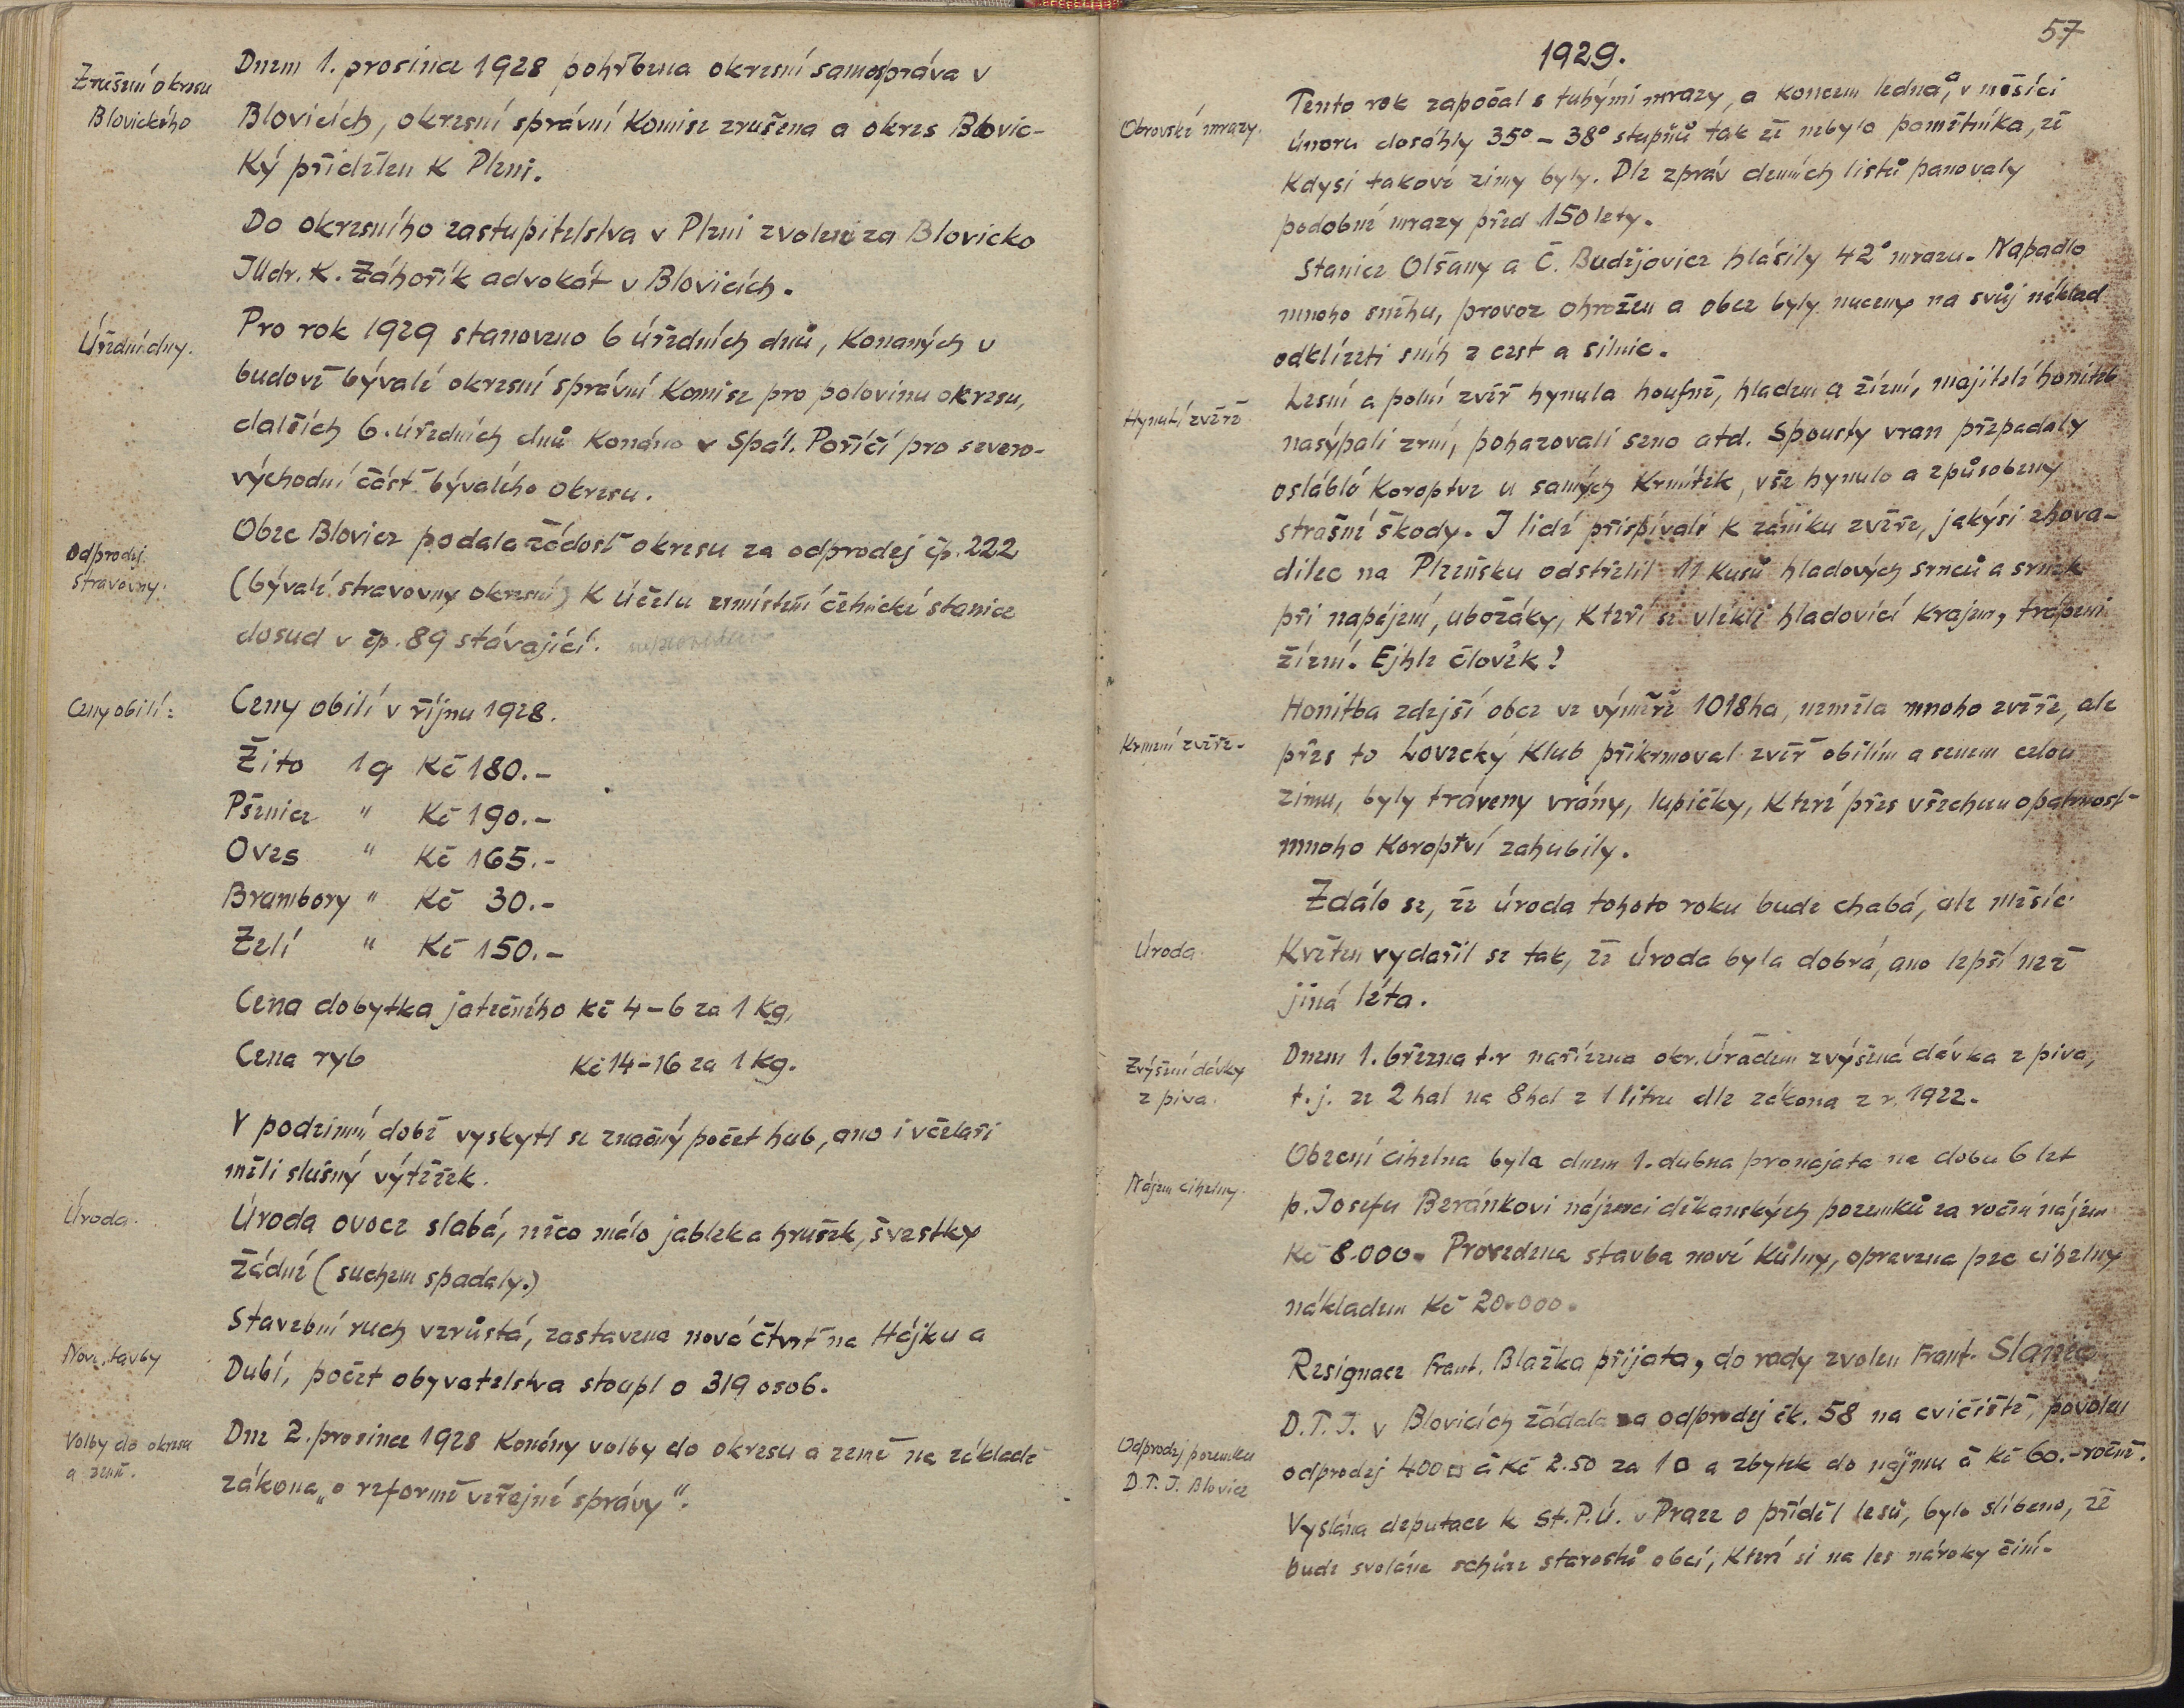 Zrušení okresu
Blovického
Dnem 1. prosince 1928 pohřbena okresní samospráva v
Blovicích, okresní správní Komise zrušena a okres Blovic-
Ký přidělen K Plzni.
Do okresního zastupitelstva v Plzni zvolen za Blovicko
JUdr. K. Záhořík advokát v Blovicích.
Úřední dny.
Pro rok 1929 stanoveno 6 úředních dnů, Konaných v
budově bývalé okresní správní Komise pro polovinu okresu,
dalších 6. úředních dnů Konáno v Spál. Poříčí pro severo-
východní část bývalého okresu.
Odprodej
stravovny.
Obec Blovice podala žádost okresu za odprodej čp. 222
(bývalé stravovny okresní) K účelu umístění četnické stanice
dosud v čp. 89 stávající. neprovedeno
Ceny obilí:
Ceny obilí v říjnu 1928.
Žito 1q Kč 180.-
Pšenice " Kč 190.-
Oves " Kč 165.-
Brambory " Kč 30.-
Zelí " Kč 150.-
Cena dobytka jatečného Kč 4-6 za 1 Kg,
Cena ryb Kč 14-16 za 1 Kg.
V podzimní době vyskytl se značný počet hub, ano i včelaři
měli slušný výtěžek.
Úroda.
Úroda ovoce slabá, něco málo jablek a hrušek, švestky
žádné (suchem spadaly.)
Nové stavby
Stavební ruch vzrůstá, zastavena nová čtvrť na Hájku a
Dubí, počet obyvatelstva stoupl o 319 osob.
Volby do okresu
a země.
Dne 2. prosince 1928 Konány volby do okresu a země na základě
zákona „o reformě veřejné správy".
57
1929.
Obrovské mrazy.
Tento rok započal s tuhými mrazy, a koncem ledna, a v měsíci
únoru dosáhly 35° - 38° stupňů tak že nebylo pamětníka, že
Kdysi takové zimy byly. Dle zpráv denních listů panovaly
podobné mrazy před 150 lety.
Stanice Olšany a Č. Budějovice hlásily 42° mrazu. Napadlo
mnoho sněhu, provoz ohrožen a obce byly nuceny na svůj náklad
odklízeti sníh z cest a silnic.
Hynutí zvěře
Lesní a polní zvěř hynula houfně, hladem a žízní, majitelé honiteb
nasýpali zrní, pohazovali seno atd. Spousty vran přepadaly
osláblé Koroptve u samých Krmítek, vše hynulo a způsobeny
strašné škody. I lidé přispívali k zániku zvěře, jakýsi zhova-
dilec na Plzeňsku odstřelil 11 Kusů hladových srnců a srnek
při napájení, ubožáky, Kteří se vlékli hladovící Krajem, trápeni
žízní. Ejhle člověk!
Krmení zvěře.
Honitba zdejší obce ve výměře 1018 ha, neměla mnoho zvěře, ale
přes to Lovecký Klub přikrmoval zvěř obilím a senem celou
zimu, byly tráveny vrány, lupičky, Které přes všechnu opatrnost
mnoho Koroptví zahubily.
Zdálo se, že úroda tohoto roku bude chabá, ale měsíc
Úroda.
Květen vydařil se tak, že úroda byla dobrá, ano lepší než
jiná léta.
Zvýšení dávky
z piva.
Dnem 1. března t.r nařízena okr. Úřadem zvýšená dávka z piva,
t.j. ze 2 hal na 8 hal z 1 litru dle zákona z r. 1922.
Nájem cihelny.
Obecní cihelna byla dnem 1. dubna pronajata na dobu 6 let
p. Josefu Beránkovi nájemci děkanských pozemků za roční nájem
Kč 8.000. Provedena stavba nové Kůlny, opravena pec cihelny
nákladem Kč 20.000.
Resignace Frant. Blažka přijata, do rady zvolen Frant.
Odprodej pozemku
D.T.J. Blovice
D.T.J. v Blovicích žádala za odprodej čk. 58 na cvičiště, povolen
odprodej 400□ á Kč 2.50 za 1□ a zbytek do nájmu á Kč 60.- ročně.
Vyslána deputace k St.P.Ú. v Praze o příděl lesů, bylo slíbeno, že
bude svolána schůze starostů obcí, Kteří si na les nároky činí.